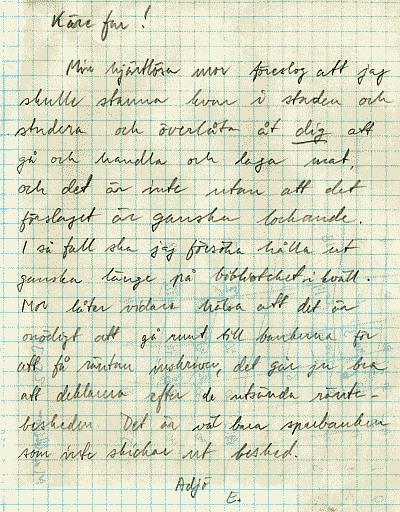 Käre far!
Min hjärtlösa mor föreslog att jag
skulle stanna kvar i staden och
studera och överlåta åt dig att
gå och handla och laga mat,
och det är inte utan att det
förslaget är ganska lockande.
I så fall ska jag försöka hålla ut
ganska länge på biblioteket i kväll.
Mor låter vidare hälsa att det är
onödigt att gå runt till bankerna för
att få räntan inskriven, det går ju bra
att deklarera efter de utsända ränte-
beskeden. Det är väl bara sparbanken
som inte skickar ut besked.
Adjö
E.